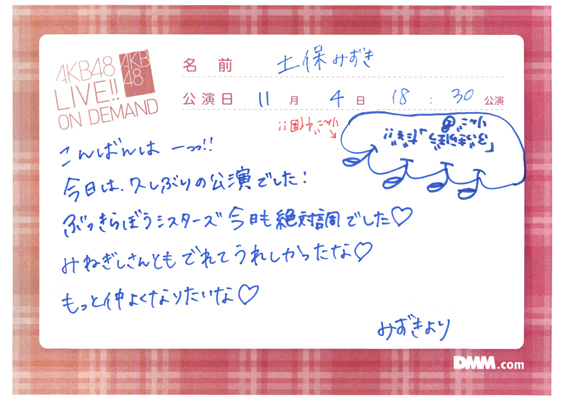 AKB48
LIVE!!
ON DEMAND
AKB
48
名前 土保みずき
公演日 11月 4日 18:30公演
こんばんは ーっ!!
今日は、久しぶりの公演でした!
ぶっきらぼうシスターズ今日も絶対調でした♡
みねぎしさんともでれてうれしかったな♡
もっと仲よくなりたいな♡
みずきより
DMM.com